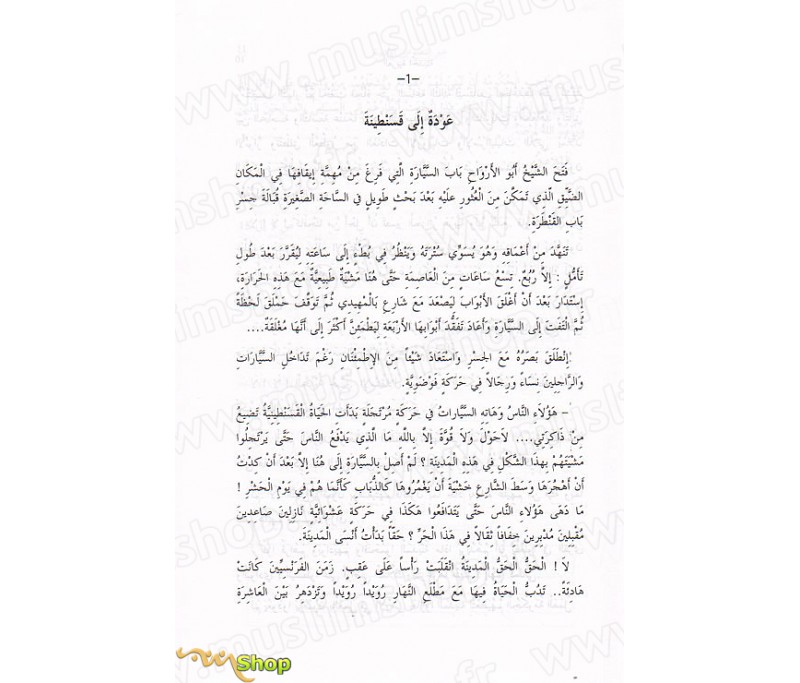 –1–
عَوْدَةٌ إِلَى قَسَنْطِينَةَ
فَتَحَ الشَّيْخُ أَبُو الأَرْوَاحِ بَابَ السَّيَّارَةِ الَّتِي فَرِغَ مِنْ مُهِمَّةِ إِيقَافِهَا فِي الْمَكَانِ
الضَّيِّقِ الَّذِي تَمَكَّنَ مِنَ الْعُثُورِ عَلَيْهِ بَعْدَ بَحْثٍ طَوِيلٍ فِي السَّاحَةِ الصَّغِيرَةِ قُبَالَةَ جِسْرِ
بَابِ الْقَنْطَرَةِ.
تَنَهَّدَ مِنْ أَعْمَاقِهِ وَهُوَ يُسَوِّي سُتْرَتَهُ وَيَنْظُرُ فِي بُطْءٍ إِلَى سَاعَتِهِ لِيُقَرِّرَ بَعْدَ طُولِ
تَأَمُّلٍ : إِلاَّ رُبُعٌ. تِسْعُ سَاعَاتٍ مِنَ الْعَاصِمَةِ حَتَّى هُنَا مَشْيَةٌ طَبِيعِيَّةٌ مَعَ هَذِهِ الْحَرَارَةِ،
إِسْتَدَارَ بَعْدَ أَنْ أَغْلَقَ الأَبْوَابَ لِيَصْعَدَ مَعَ شَارِعِ بَالْمُهِيدِي ثُمَّ تَوَقَّفَ حَمْلَقَ لَحْظَةً
ثُمَّ الْتَفَتَ إِلَى السَّيَّارَةِ وَأَعَادَ تَفَقُّدَ أَبْوَابِهَا الأَرْبَعَةِ لِيَطْمَئِنَّ أَكْثَرَ إِلَى أَنَّهَا مُغْلَقَةٌ....
إِنْطَلَقَ بَصَرُهُ مَعَ الْجِسْرِ وَاسْتَعَادَ شَيْئاً مِنَ الإِطْمِئْنَانِ رَغْمَ تَدَاخُلِ السَّيَّارَاتِ
وَالرَّاجِلِينَ نِسَاءً وَرِجَالاً فِي حَرَكَةٍ فَوْضَوِيَّةٍ.
– هَؤُلاَءِ النَّاسُ وَهَاتِهِ السَّيَّارَاتُ فِي حَرَكَةٍ مُرْتَجَلَةٍ بَدَأَتِ الْحَيَاةُ الْقَسَنْطِينِيَّةُ تَضِيعُ
مِنْ ذَاكِرَتِي.... لاَحَوْلَ وَلاَ قُوَّةَ إِلاَّ بِاللهِ مَا الَّذِي يَدْفَعُ النَّاسَ حَتَّى يَرْتَجِلُوا
مَشْيَتَهُمْ بِهَذَا الشَّكْلِ فِي هَذِهِ الْمَدِينَةِ ؟ لَمْ أَصِلْ بِالسَّيَّارَةِ إِلَى هُنَا إِلاَّ بَعْدَ أَنْ كِدْتُ
أَنْ أَهْجُرَهَا وَسَطَ الشَّارِعِ خَشْيَةَ أَنْ يَغْمُرُوهَا كَالذُّبَابِ كَأَنَّمَا هُمْ فِي يَوْمِ الْحَشْرِ !
مَا دَهَى هَؤُلاَءِ النَّاسَ حَتَّى يَتَدَافَعُوا هَكَذَا فِي حَرَكَةٍ عَشْوَائِيَّةٍ نَازِلِينَ صَاعِدِينَ
مُقْبِلِينَ مُدْبِرِينَ خِفَافاً ثِقَالاً فِي هَذَا الْحَرِّ ؟ حَقّاً بَدَأْتُ أَنْسَى الْمَدِينَةَ.
لاَ ! الْحَقُّ الْحَقُّ الْمَدِينَةُ انْقَلَبَتْ رَأْساً عَلَى عَقِبٍ. زَمَنَ الْفَرَنْسِيِّينَ كَانَتْ
هَادِئَةً.. تَدُبُّ الْحَيَاةُ فِيهَا مَعَ مَطْلَعِ النَّهَارِ رُوَيْداً رُوَيْداً وَتَزْدَهِرُ بَيْنَ الْعَاشِرَةِ
www.muslimshop.fr
Shop